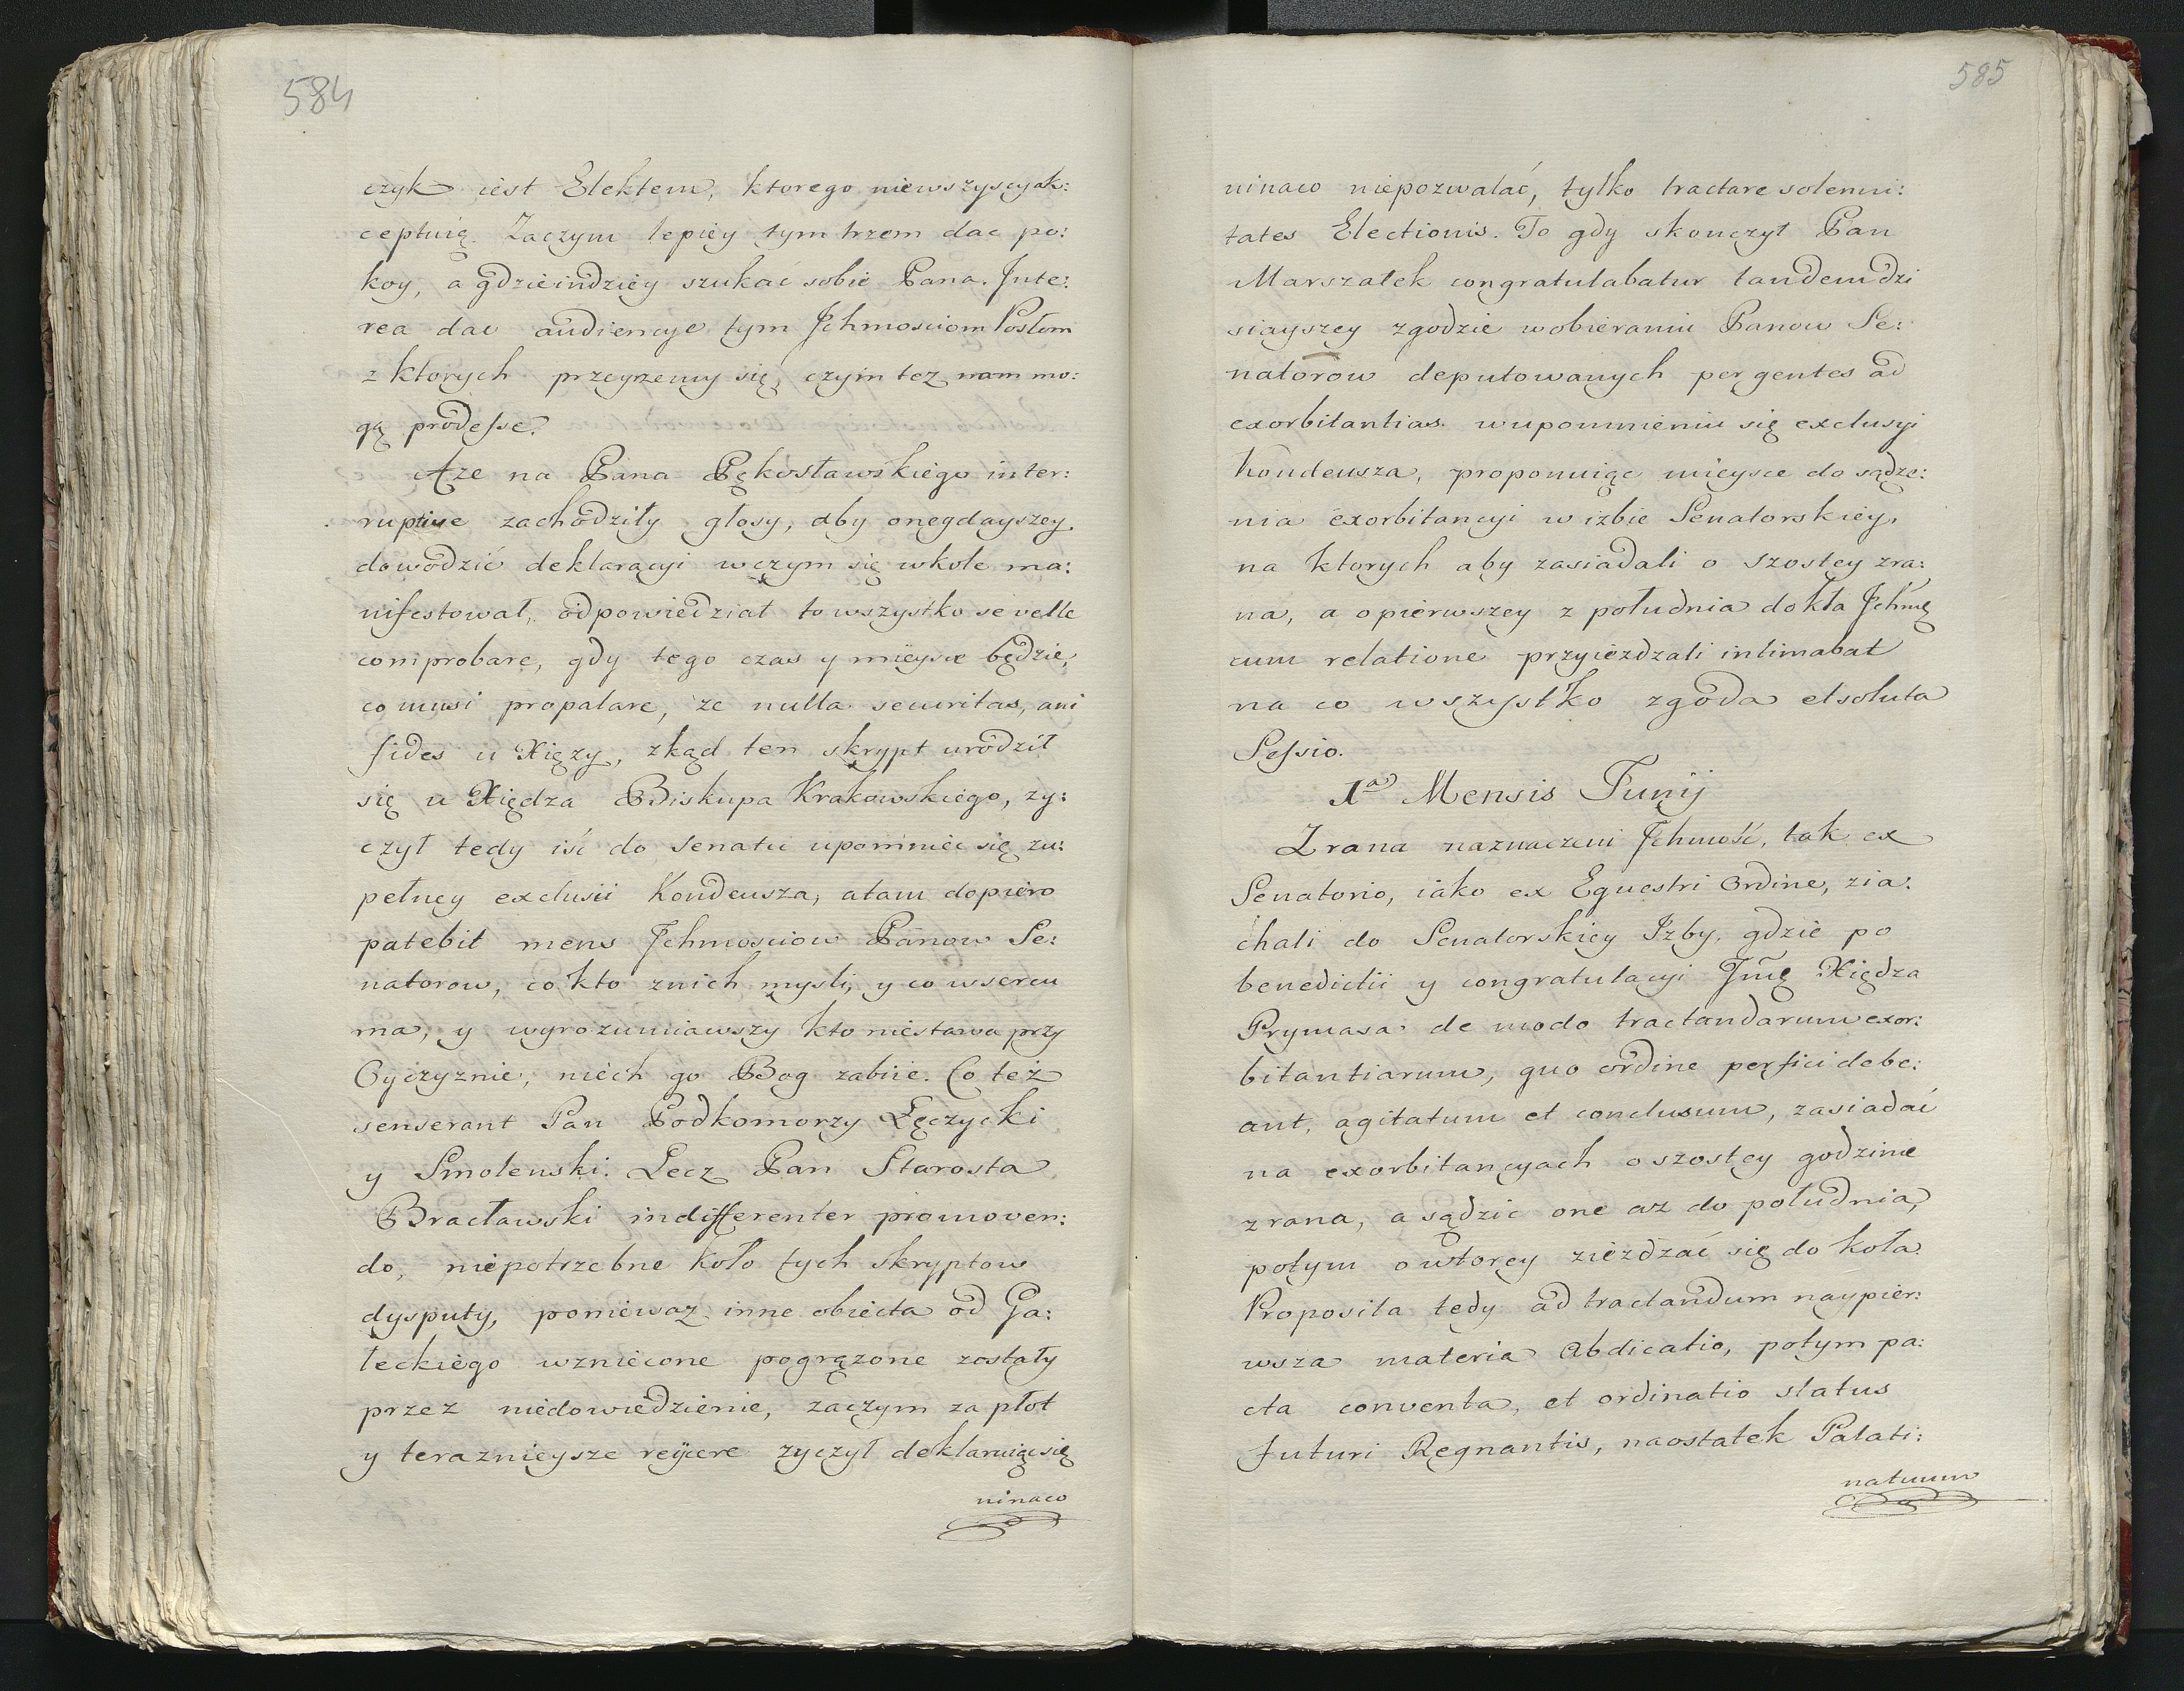 584
czyk iest Elektem, ktorego niewszyscy ak:
ceptuią. Zaczym lepiey tym trzem dac po:
koy, a gdzieindziey szukać sobie Pana. Inte:
rea dac audiencye tym Ichmosciom Posłom
z ktorych przeyrzemy się, czym tez nam mo:
gą prodesse.
Aze na Pana Pękosławskiego inter:
ruptive zachodziły głosy, aby onegdayszey
dowodzić deklaracyi wczym się wkole ma:
nifestował, odpowiedział to wszystko se velle
comprobare, gdy tego czas y mieysce będzie,
co musi propalare, ze nulla securitas, ani
fides u Xięzy, zkąd ten skrypt urodził
się u Xiędza Biskupa Krakowskiego, zy:
czył tedy iść do Senatu upomniec się zu:
pełney exclusii Kondeusza, a tam dopiero
patebit mens Ichmosciow Panow Se:
natorow, co kto znich mysli, y co w sercu
ma, y wyrozumiawszy kto niestawa przy
Oyczyznie, niech go Bog zabiie. Co też
senserant Pan Podkomorzy Łęczycki
y Smolenski. Lecz Pan Starosta
Bracławski indifferenter promoven:
do, niepotrzebne koło tych skryptow
dysputy, poniewaz inne obiecta od Ga:
łeckiego wzniecone pogrązone zostały
przez niedowiedzienie, zaczym za płot
y teraznieysze reyicere zyczył deklaruiąc się
ninaco
585
ninaco niepozwalać, tylko tractare solenni:
tates Electionis. To gdy skonczył Pan
Marszałek congratulabatur tandem dzi
siayszey zgodzie wobieraniu Panow Se:
natorow deputowanych per gentes ad
exorbitantias. wupomnieniu się exclusyi
Kondeusza, proponuiąc mieysce do sądze:
nia exorbitancyi w izbie Senatorskiey,
na ktorych aby zasiadali o szostey zra:
na, a o pierwszey z południa do kła Ichmę
cum relatione przyiezdzali intimabat
na co wszystko zgoda et soluta
Sessio.
1a Mensis Junij
Zrana naznaczeni Ichmość, tak ex
Senatorio, iako ex Equestri Ordine, zia:
chali do Senatorskiey Izby, gdzie po
benedictii y congratulacyi Jmę Xiędza
Prymasa de modo tractandarum exor:
bitantiarum, quo ordine perfici debe:
ant, agitatum et conclusum, zasiadać
na exorbitancyach o szostey godzinie
z rana, a sądzic one az do południa,
potym o wtorey ziezdzać się do koła.
Proposita tedy ad tractandum naypier:
wsza materia Abdicatio, potym pa:
cta conventa, et ordinatio status
futuri Regnantis, naostatek Palati:
natuum